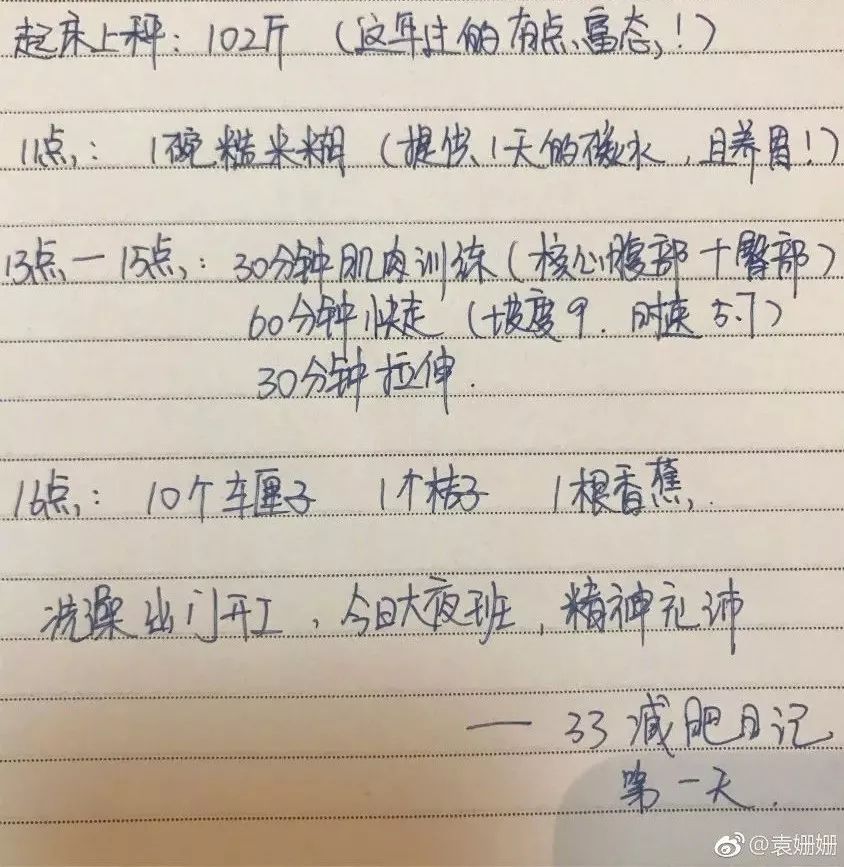 起床上秤：102斤（这年过的有点富态！）
11点：1碗糙米糊（提供1天的碳水，且养胃！）
13点－15点：30分钟肌肉训练（核心腹部＋臀部）
60分钟快走（坡度9．时速5.7）
30分钟拉伸．
16点：10个车厘子 1个桔子 1根香蕉．
洗澡出门开工，今日大夜班，精神充沛
— 33减肥日记
第一天．
@袁姗姗